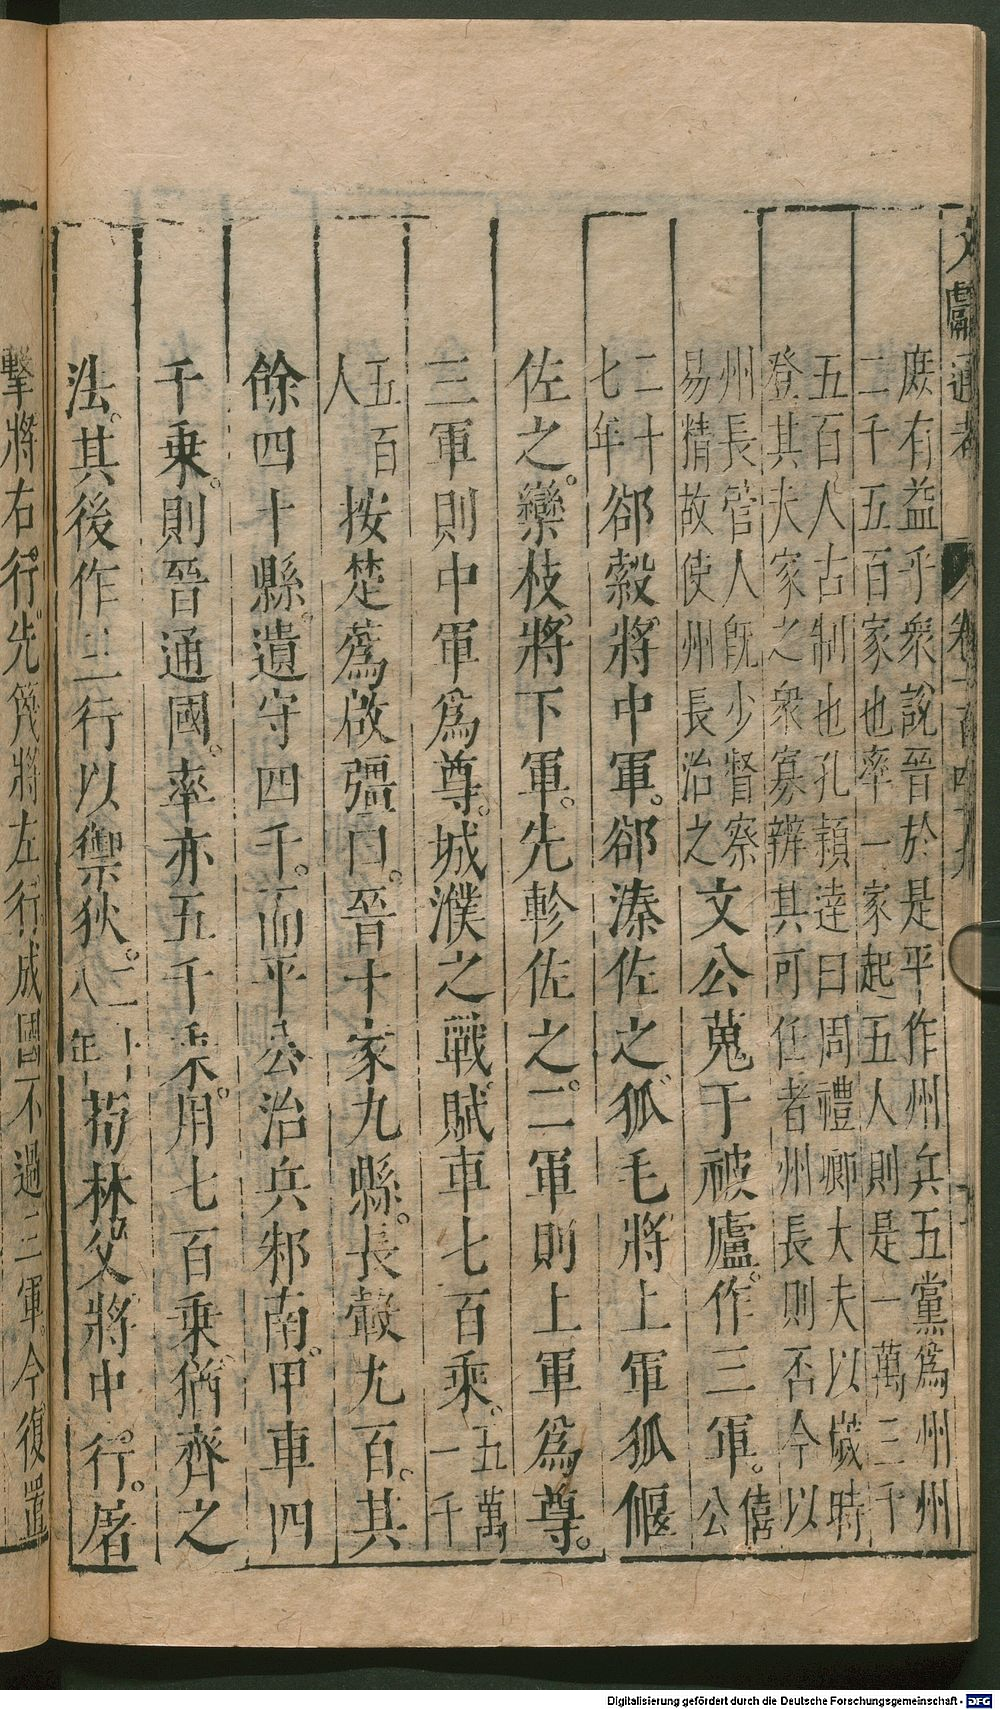 文獻通考 卷一百四十九
庶有益乎衆說晉於是乎作州兵五黨爲州州
二千五百家也率一家起五人則是一萬三千
五百人古制也孔穎達曰周禮鄉大夫以歲時
登其夫家之衆寡辨其可任者州長則否今以
州長管人既少督察
易精故使州長治之
文公蒐于被廬。作三軍。僖公
二十七年郤縠將中軍。郤溱佐之。狐毛將上軍狐偃
佐之。欒枝將下軍。先軫佐之。二軍則上軍爲尊。
三軍則中軍爲尊。城濮之戰。賦車七百乘。五萬一千
五百人按楚薳啟彊曰。晉十家九縣。長轂九百。其
餘四十縣。遺守四千。而平公治兵邾南。甲車四
千乘。則晉通國。率亦五千乘。用七百乘。猶齊之
法。其後作三行以禦狄。二十八年荀林父將中行。屠
擊將右行。先篾將左行。成國不過三軍。今復置
Digitalisierung gefördert durch die Deutsche Forschungsgemeinschaft - DFG